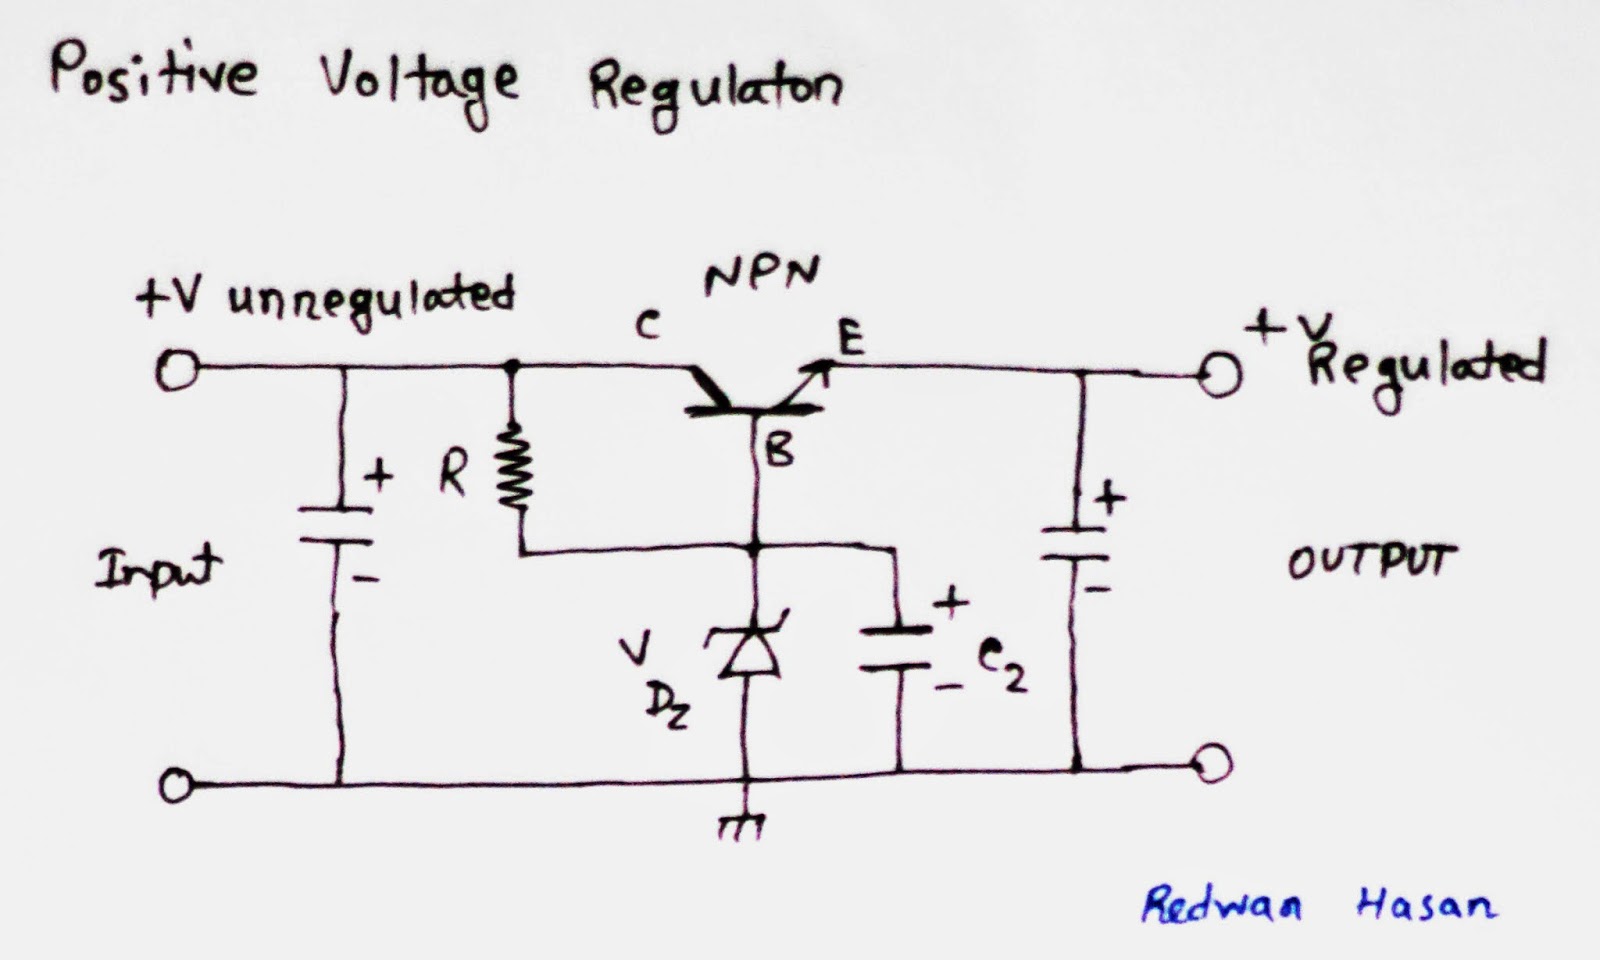 Positive Voltage Regulator
NPN
+V unregulated
C
E
+V Regulated
B
+
R
+
Input
-
OUTPUT
-
+
V Dz
- C2
Redwan Hasan